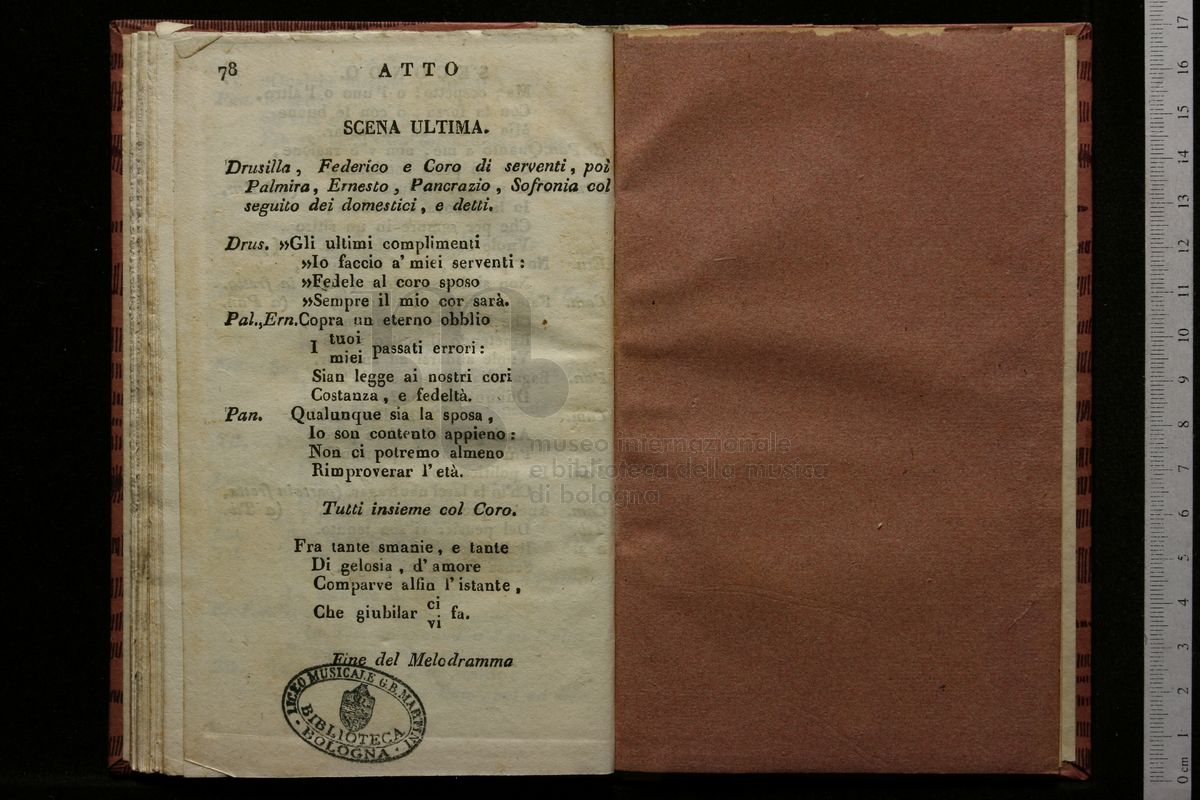 78 ATTO
SCENA ULTIMA.
Drusilla, Federico e Coro di serventi, poi
Palmira, Ernesto, Pancrazio, Sofronia col
seguito dei domestici, e detti.
Drus. »Gli ultimi complimenti
»Io faccio a' miei serventi:
»Fedele al coro sposo
»Sempre il mio cor sarà.
Pal., Ern. Copra un eterno obblio
I tuoi miei passati errori:
Sian legge ai nostri cori
Costanza, e fedeltà.
Pan. Qualunque sia la sposa,
Io son contento appieno:
Non ci potremo almeno
Rimproverar l'età.
Tutti insieme col Coro.
Fra tante smanie, e tante
Di gelosia, d'amore
Comparve alfin l'istante,
Che giubilar ci vi fa.
Fine del Melodramma
LICEO MUSICALE G.B. MARTINI
BIBLIOTECA
BOLOGNA
museo internazionale
e biblioteca della musica
di bologna
0 cm 1 2 3 4 5 6 7 8 9 10 11 12 13 14 15 16 17